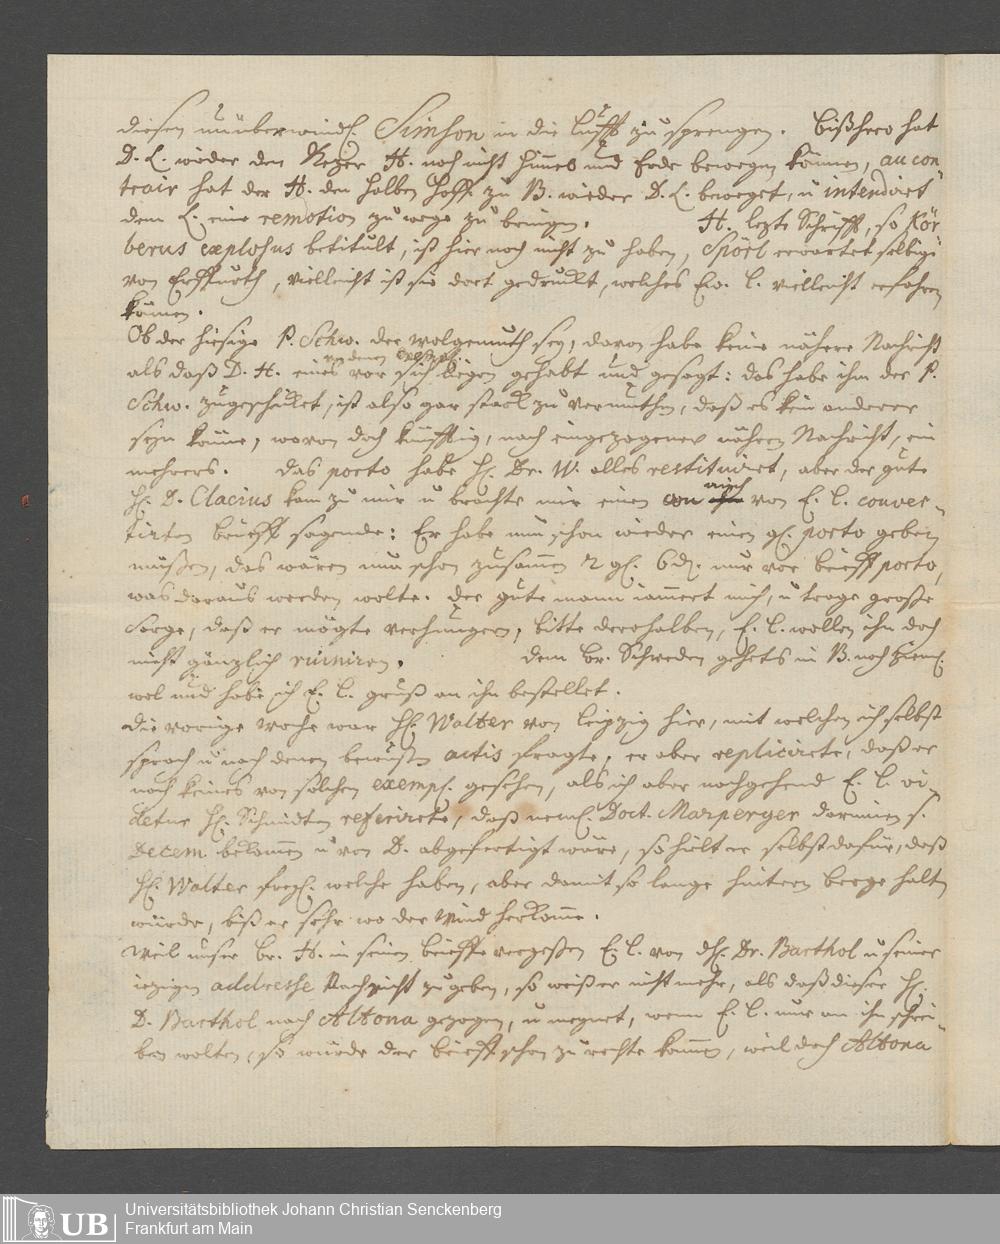 diesen unüberwindl. Simson in die Lufft zu sprengen. Bißhero hat
D. L. wieder den Kezer H. noch nicht Himel und Erde bewegen können, au con
trair hat der H. den halben Hoff zu B. wieder D. L. beweget, u intendiret
dem L. eine remotion zu wege zu bringen. H. lezte Schrifft, so Kör-
berus explosus betitult, ist hier noch nicht zu haben, Spörl erwartet selbige
von Erffurth, vielleicht ist sie dort gedruckt, welches Ew. L. vielleicht erfahren
können.
Ob der hiesige P. Schw. der Wolgemuth sey, davon habe keine nähere Nachricht
als daß D. H. eines von denen Exempl. vor sich liegen gehabt und gesagt: das habe ihm der P.
Schw. zugeschicket, ist also gar starck zu vermuthen, daß es kein anderer
seyn könne, wovon doch künfftig, nach eingezogener nähern Nachricht, ein
mehrers. Das porto habe H. Dr. W. alles restituiret, aber der gute
H. D. Clacius kam zu mir u brachte mir einen an mich von E. L. couver-
tirten Brieff sagende: Er habe nun schon wieder einen gl. porto geben
müßen, das wären nun schon zusamen 2 gl. 6 d. nur vor Brieff porto,
was daraus werden wolte. Der gute mann iamert mich, u trage große
Sorge, daß er mögte verhungern, bitte derohalben, E. L. wollen ihn doch
nicht gänzlich ruiniren. Dem Br. Schweden gehets in B. noch ziml.
wol und habe ich E. L. gruß an ihn bestellet.
Die vorige Woche war H. Walter von Leipzig hier, mit welchen ich selbst
sprach u nach denen bewusten actis fragte, er aber replicirte, daß er
noch keines von solchen exempl. gesehen, als ich aber nachgehend E. L. vi-
detur H. Schmidten referirete, daß neml. Doct. Marperger darinnen s.
Decem bekomen u von D. abgefertigt wäre, so hielt er selbst dafür, daß
H. Walter freyl. welche haben, aber damit so lange hintern Berge halten
würde, biß er sehe wo der Wind herkome.
Weil unser Br. H. in seinen Brieffe vergeßen E. L. von H. Dr. Barthol u seiner
iezigen addresse Nachricht zu geben, so weiß er nicht mehr, als daß dieser H.
D. Barthol nach Altona gezogen, u meynet, wenn E. L. nur an ihn schrei-
ben wolten, so würde der Brieff schon zu rechte komen, weil doch Altona
UB
Universitätsbibliothek Johann Christian Senckenberg
Frankfurt am Main